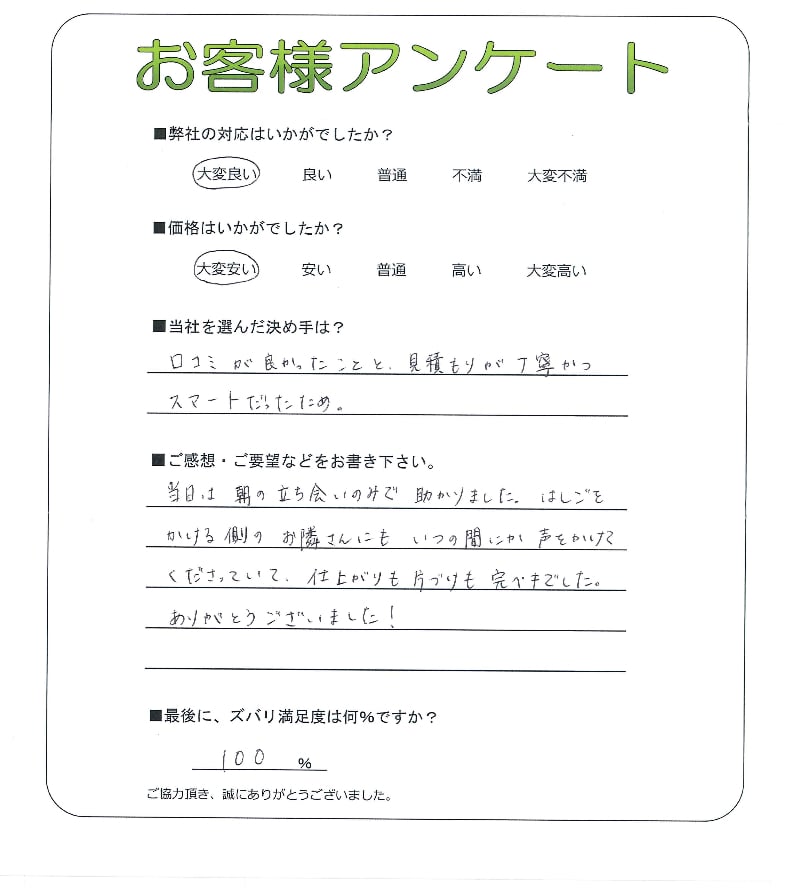 お客様アンケート
■弊社の対応はいかがでしたか？
大変良い 良い 普通 不満 大変不満
■価格はいかがでしたか？
大変安い 安い 普通 高い 大変高い
■当社を選んだ決め手は？
口コミが良かったことと、見積もりが丁寧かつ
スマートだったため。
■ご感想・ご要望などをお書き下さい。
当日は朝の立ち会いのみで助かりました。はしごを
かける側のお隣さんにもいつの間にか声をかけて
くださっていて、仕上がりも片づけも完ペキでした。
ありがとうございました！
■最後に、ズバリ満足度は何％ですか？
100 ％
ご協力頂き、誠にありがとうございました。